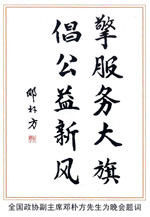 擎服务大旗
倡公益新风
邓朴方
全国政协副主席邓朴方先生为晚会题词